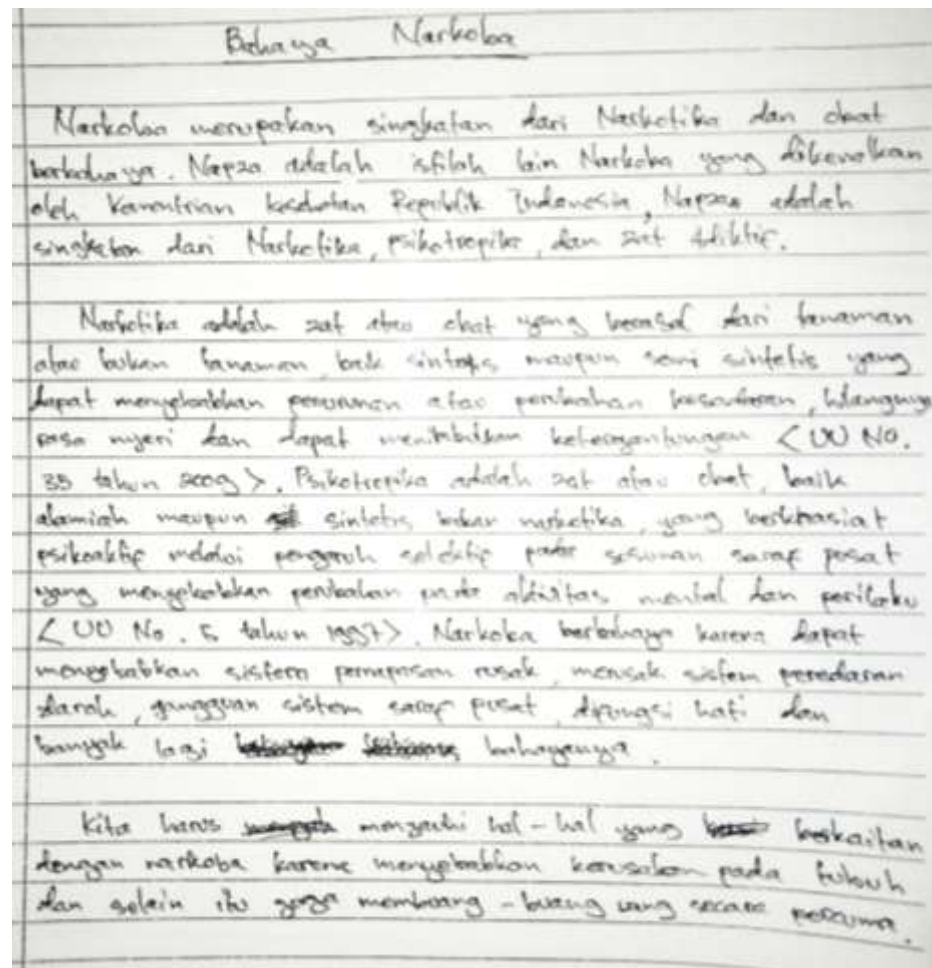 Bahaya Narkoba
Narkoba merupakan singkatan dari Narkotika dan obat
berbahaya. Napza adalah istilah lain Narkoba yang dikenalkan
oleh Kementrian kesehatan Republik Indonesia, Napza adalah
singkatan dari Narkotika, psikotropika, dan zat Adiktif.
Narkotika adalah zat atau obat yang berasal dari tanaman
atau bukan tanaman baik sintetis maupun semi sintetis yang
dapat menyebabkan penurunan atau perubahan kesadaran, hilangnya
rasa nyeri dan dapat menimbulkan ketergantungan <UU NO.
35 tahun 2009>. Psikotropika adalah zat atau obat, baik
alamiah maupun sintetis bukan narkotika, yang berkhasiat
psikoaktif melalui pengaruh selektif pada susunan saraf pusat
yang menyebabkan perubahan pada aktivitas mental dan perilaku
<UU No. 5 tahun 1997>. Narkoba berbahaya karena dapat
menyebabkan sistem pernapasan rusak, merusak sistem peredaran
darah, gangguan sistem saraf pusat, dipungsi hati dan
banyak lagi bahayanya.
Kita harus menjauhi hal-hal yang berkaitan
dengan narkoba karena menyebabkan kerusakan pada tubuh
dan selain itu juga membuang-buang uang secara percuma.